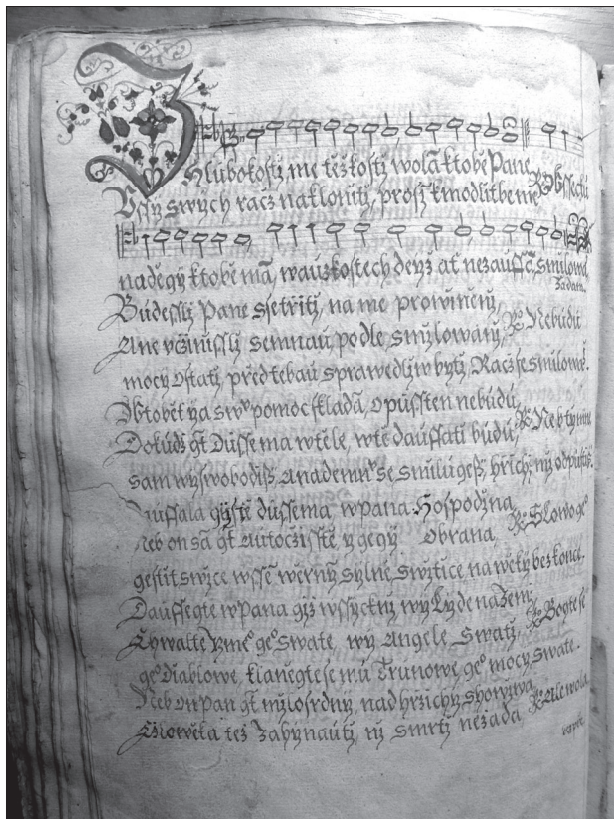 Z Hlubokosti mé těžkosti wolā ktobě Pane,
Vssy swých racz nakloniti, prosȳ kmodlitbě mé R° Obssecti
naděgy ktobě mā, wauzkostech deyž ať nezauffā, smilowá
žádám.
Budessly Pane ssetřiti, na mé prowinění,
Ane včinissly semnau, podle smilowání, R° Nebudu
mocy ostati, před tebau sprawedliw býti, Racž se smilowá.
Obtobětya sw° pomoc sklada, opussten nebudu,
Dokudž gt Dusse ma wtěle, wtě dauffati budu, R° Neb ty mne
sam wyswobodiss, anademn° se smilugess, hřichy my odpustiss.
Dauffala gistě dusse ma, wpana Hospodina,
Neb on sā gt autocžisstě y gegy Obrana, R° Slowo ge°
gestit swyce wssē wěrnȳ sylne, Swytice na wěky bez konce.
Dauffegte w Pana giž wssyckni wy Lyde na Zemi,
Zywatte Gmé ge° Swate, wy Angele Swatj, R° Bogte se
ge° Diablowe, klanegte se mu Trunowe, ge° mocy Swate.
Neb on Pan gt mylosrdny, nad hřissnȳ showywa,
Cžlowěka též zahynauti, ny smrti nežada R° Ale wola